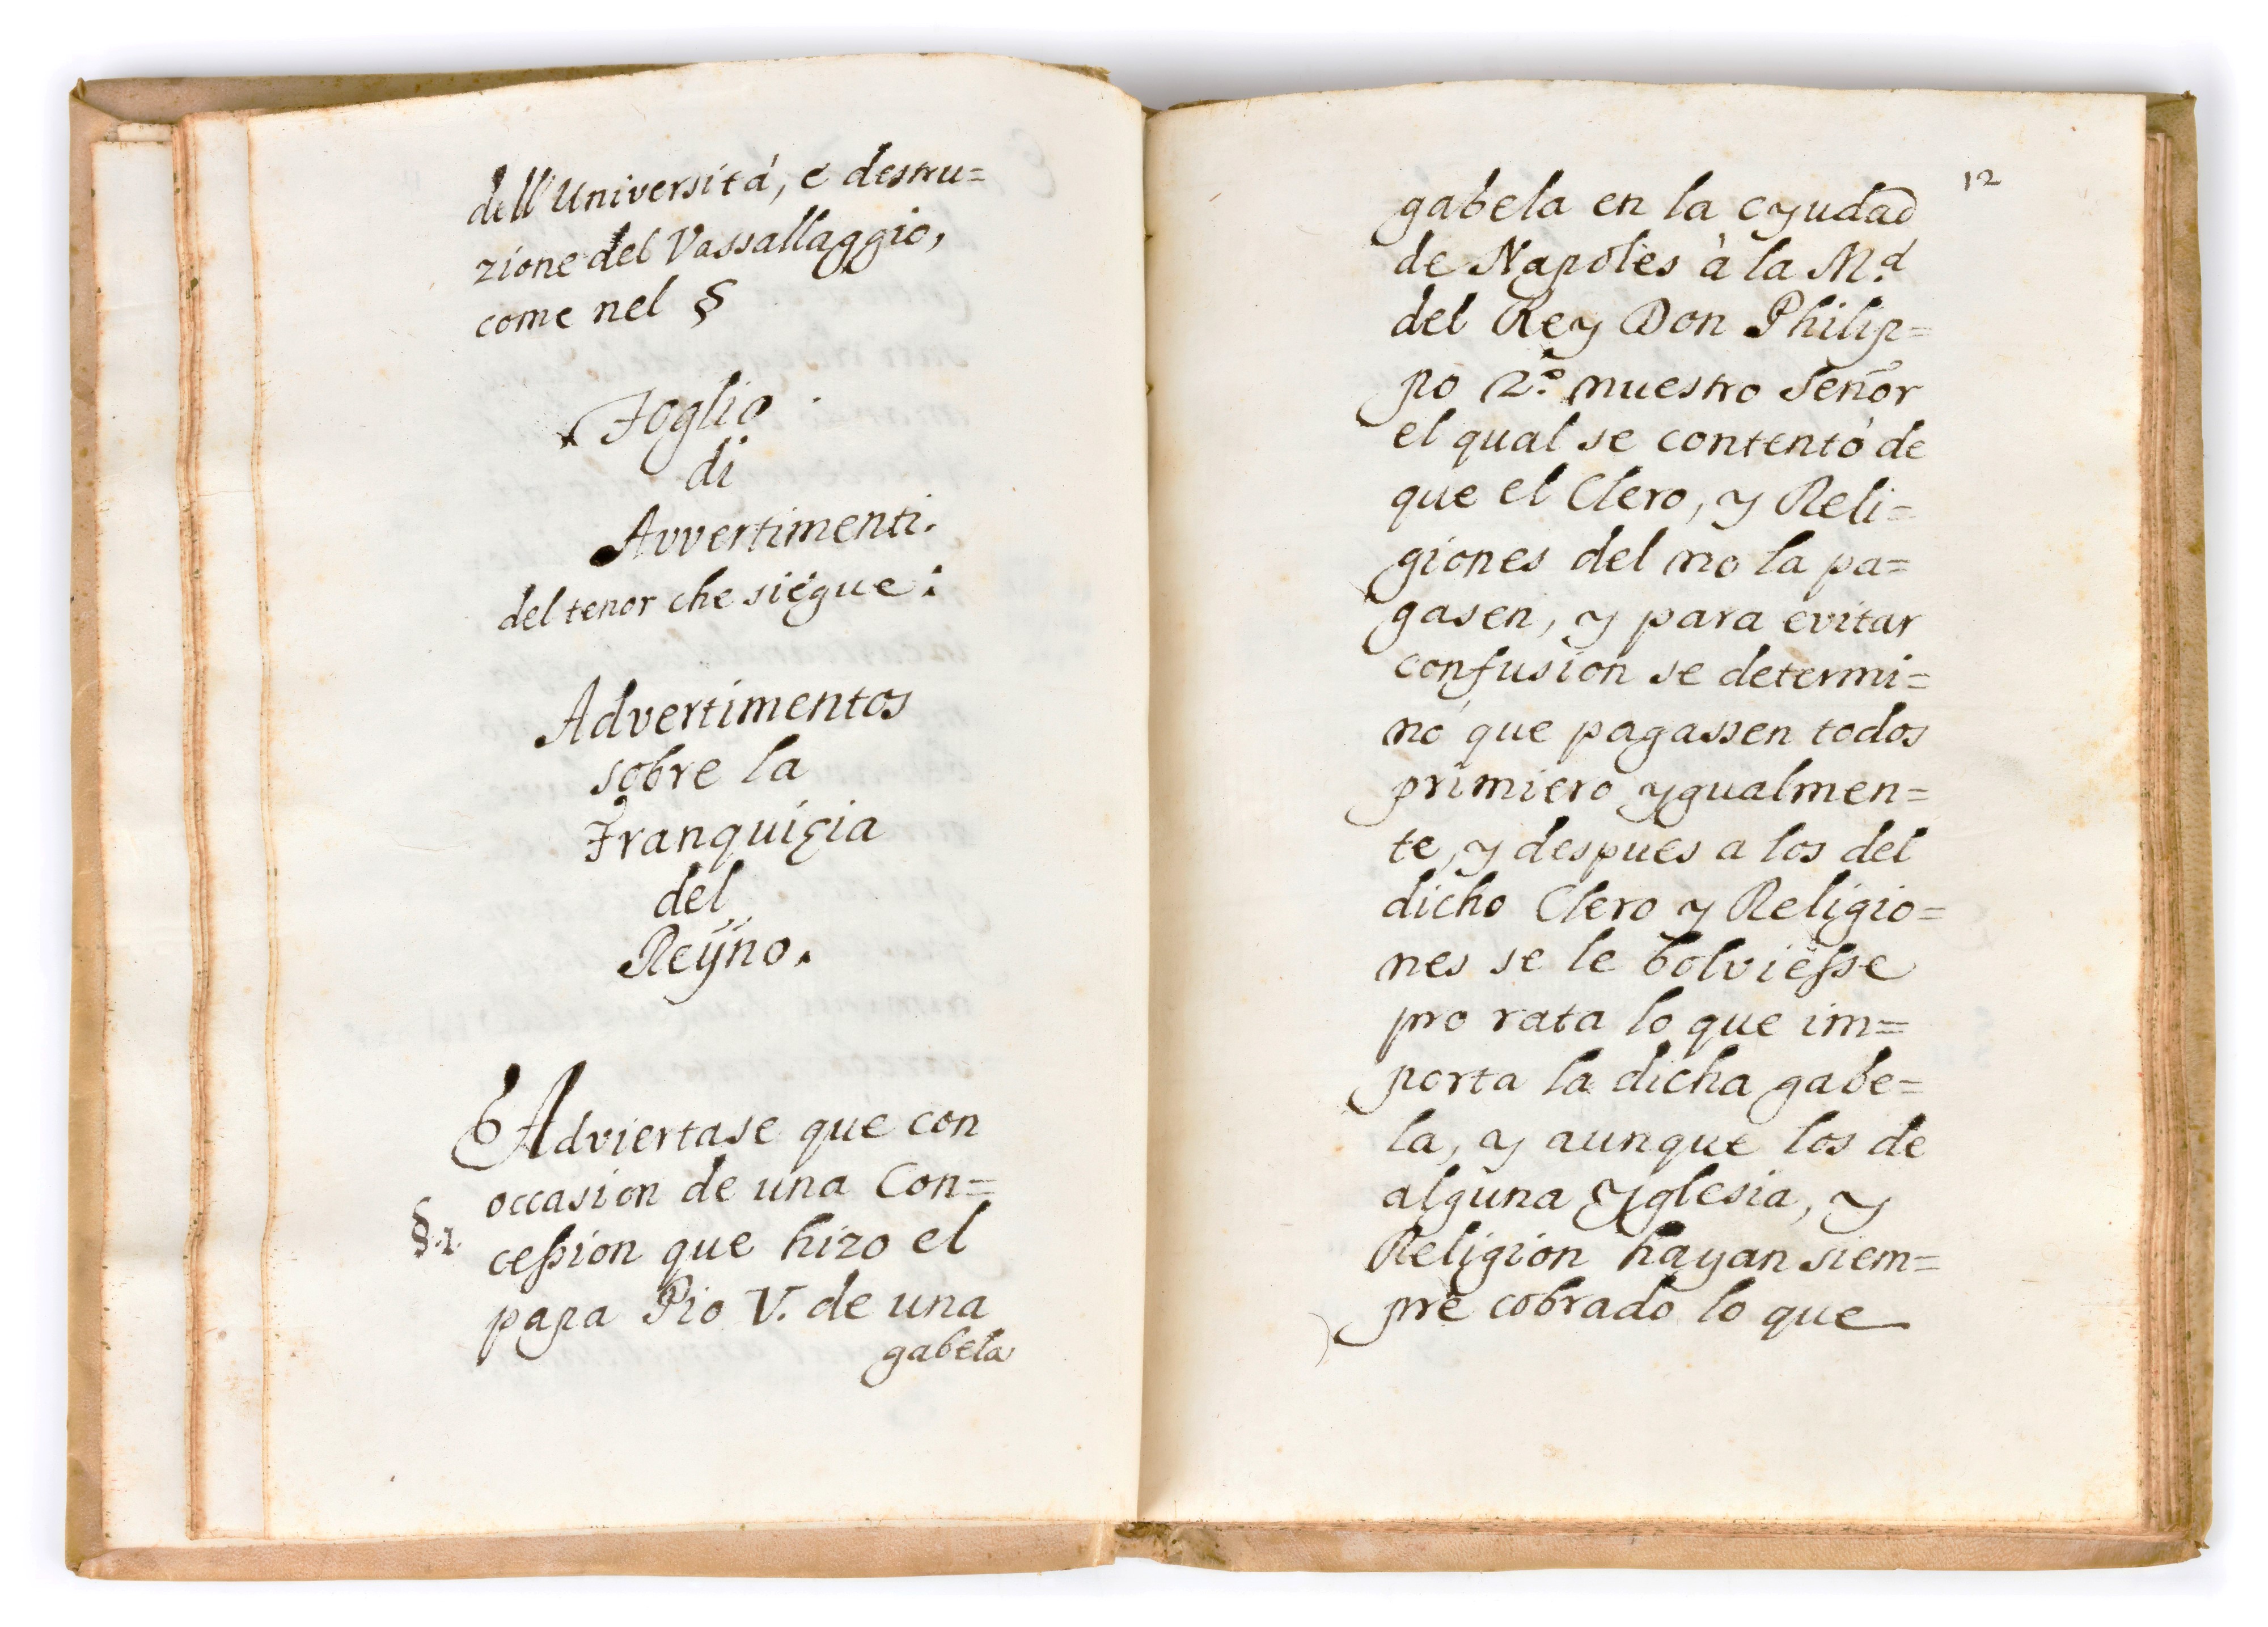 dell'Università, e destru=
zione del Vassallaggio,
come nel §
Foglio
di
Avvertimenti.
del tenor che siegue:
Advertimentos
sobre la
Franquiçia
del
Reÿno.
Adviertase que con
occasion de una Con=
§.1.
cession que hizo el
papa Pio V. de una
gabela
12
gabela en la cyudad
de Napoles à la M.d
del Rey Don Philip=
po 2.º nuestro Señor
el qual se contentò de
que el Clero, y Reli=
giones del no la pa=
gasen, y para evitar
confusion se determi=
nó que pagassen todos
primiero ygualmen=
te, y despues a los del
dicho Clero y Religio=
nes se le bolviesse
pro rata lo que im=
porta la dicha gabe=
la, y aunque los de
alguna Yglesia, y
Religion hayan siem=
pre cobrado lo que